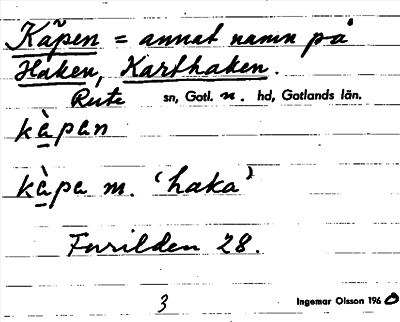 Kãpen = annat namn på
Haken, Karthaken.
Rute sn, Gotl. n. hd, Gotlands län.
kàpan
kàpa m. 'haka'
Furilden 28.
3 Ingemar Olsson 1960